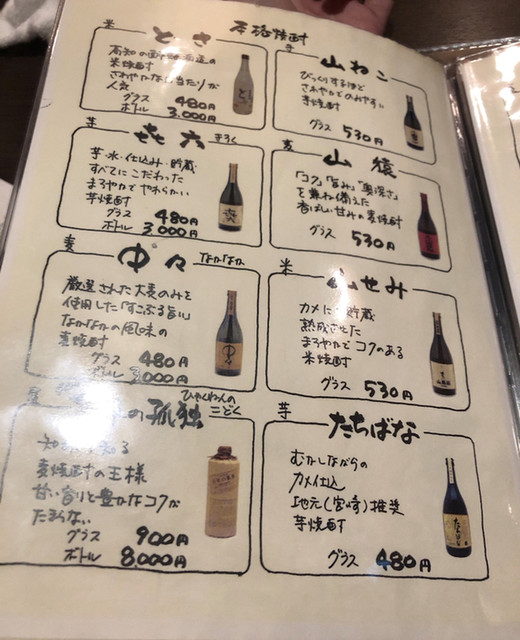 本格焼酎
米
とさ
米焼酎
さわやかな
当たりが
人気
グラス 480円
ボトル 3,000円
芋
㐂六 きろく
芋・水・仕込み・貯蔵
すべてにこだわった
まろやかでやわらかい
芋焼酎
グラス 480円
ボトル 3,000円
麦
中々 なかなか
厳選された大麦のみを
使用した「すこぶる旨い」
なかなかの風味の
麦焼酎
グラス 480円
ボトル 3,000円
の孤独
ひゃくねんの
こどく
麦焼酎の王様
甘い香りと豊かなコクが
たまらない
グラス 900円
ボトル 8,000円
芋
山ねこ
びっくりするほど
さわやかでのみやすい
芋焼酎
グラス 530円
麦
山猿
「コク」「旨み」「奥深さ」
を兼ね備えた
香ばしい甘みの麦焼酎
グラス 530円
米
山せみ
カメにて貯蔵
熟成させた
まろやかでコクのある
米焼酎
グラス 530円
芋
たちばな
むかしながらの
カメ仕込
地元(宮崎)推奨
芋焼酎
グラス 480円